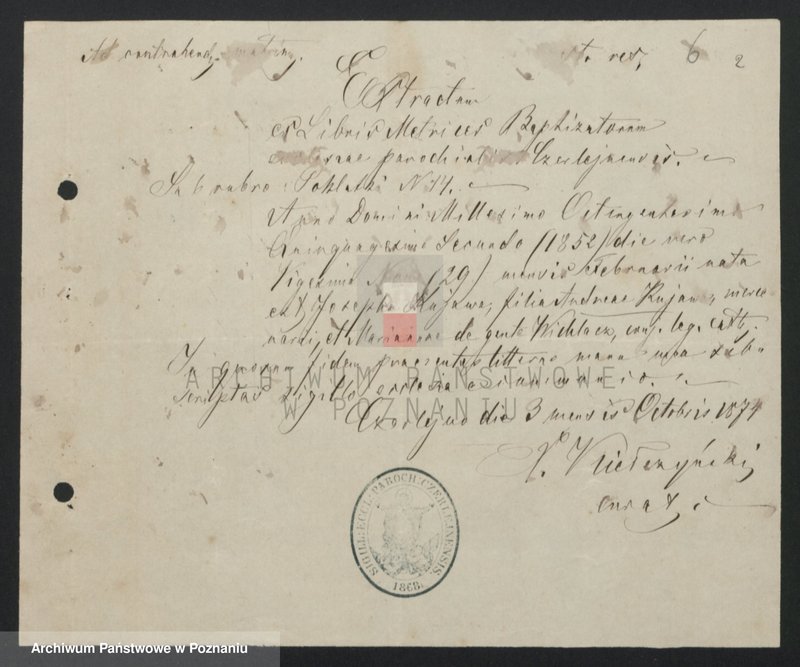 Ad contrahend. matrim. 6 2
Extractum
ex Libris Metrices Baptizatorum
ecclesiae parochialis Czerlejnensis.
Sub rubro: Poklatki N 14.
Anno Domini Millesimo Octingentesimo
Quinquagesimo Secundo (1852) die vero
Vigesima Nona (29) mensis Februarii nata
est Josepha Kujawa, filia Andreae Kujawa, merce
narii, et Mariannae de gente Wichlacz, conj. leg. cath.
In quorum fidem praesentes litteras manu mea sub
scriptas sigillo ecclesiae communio.
Czerlejno die 3 mensis Octobris 1874
X.
curat.
SIGILL: ECCL: PAROCH: CZERLEJNENSIS
1868.
ARCHIWUM PAŃSTWOWE
W POZNANIU
Archiwum Państwowe w Poznaniu